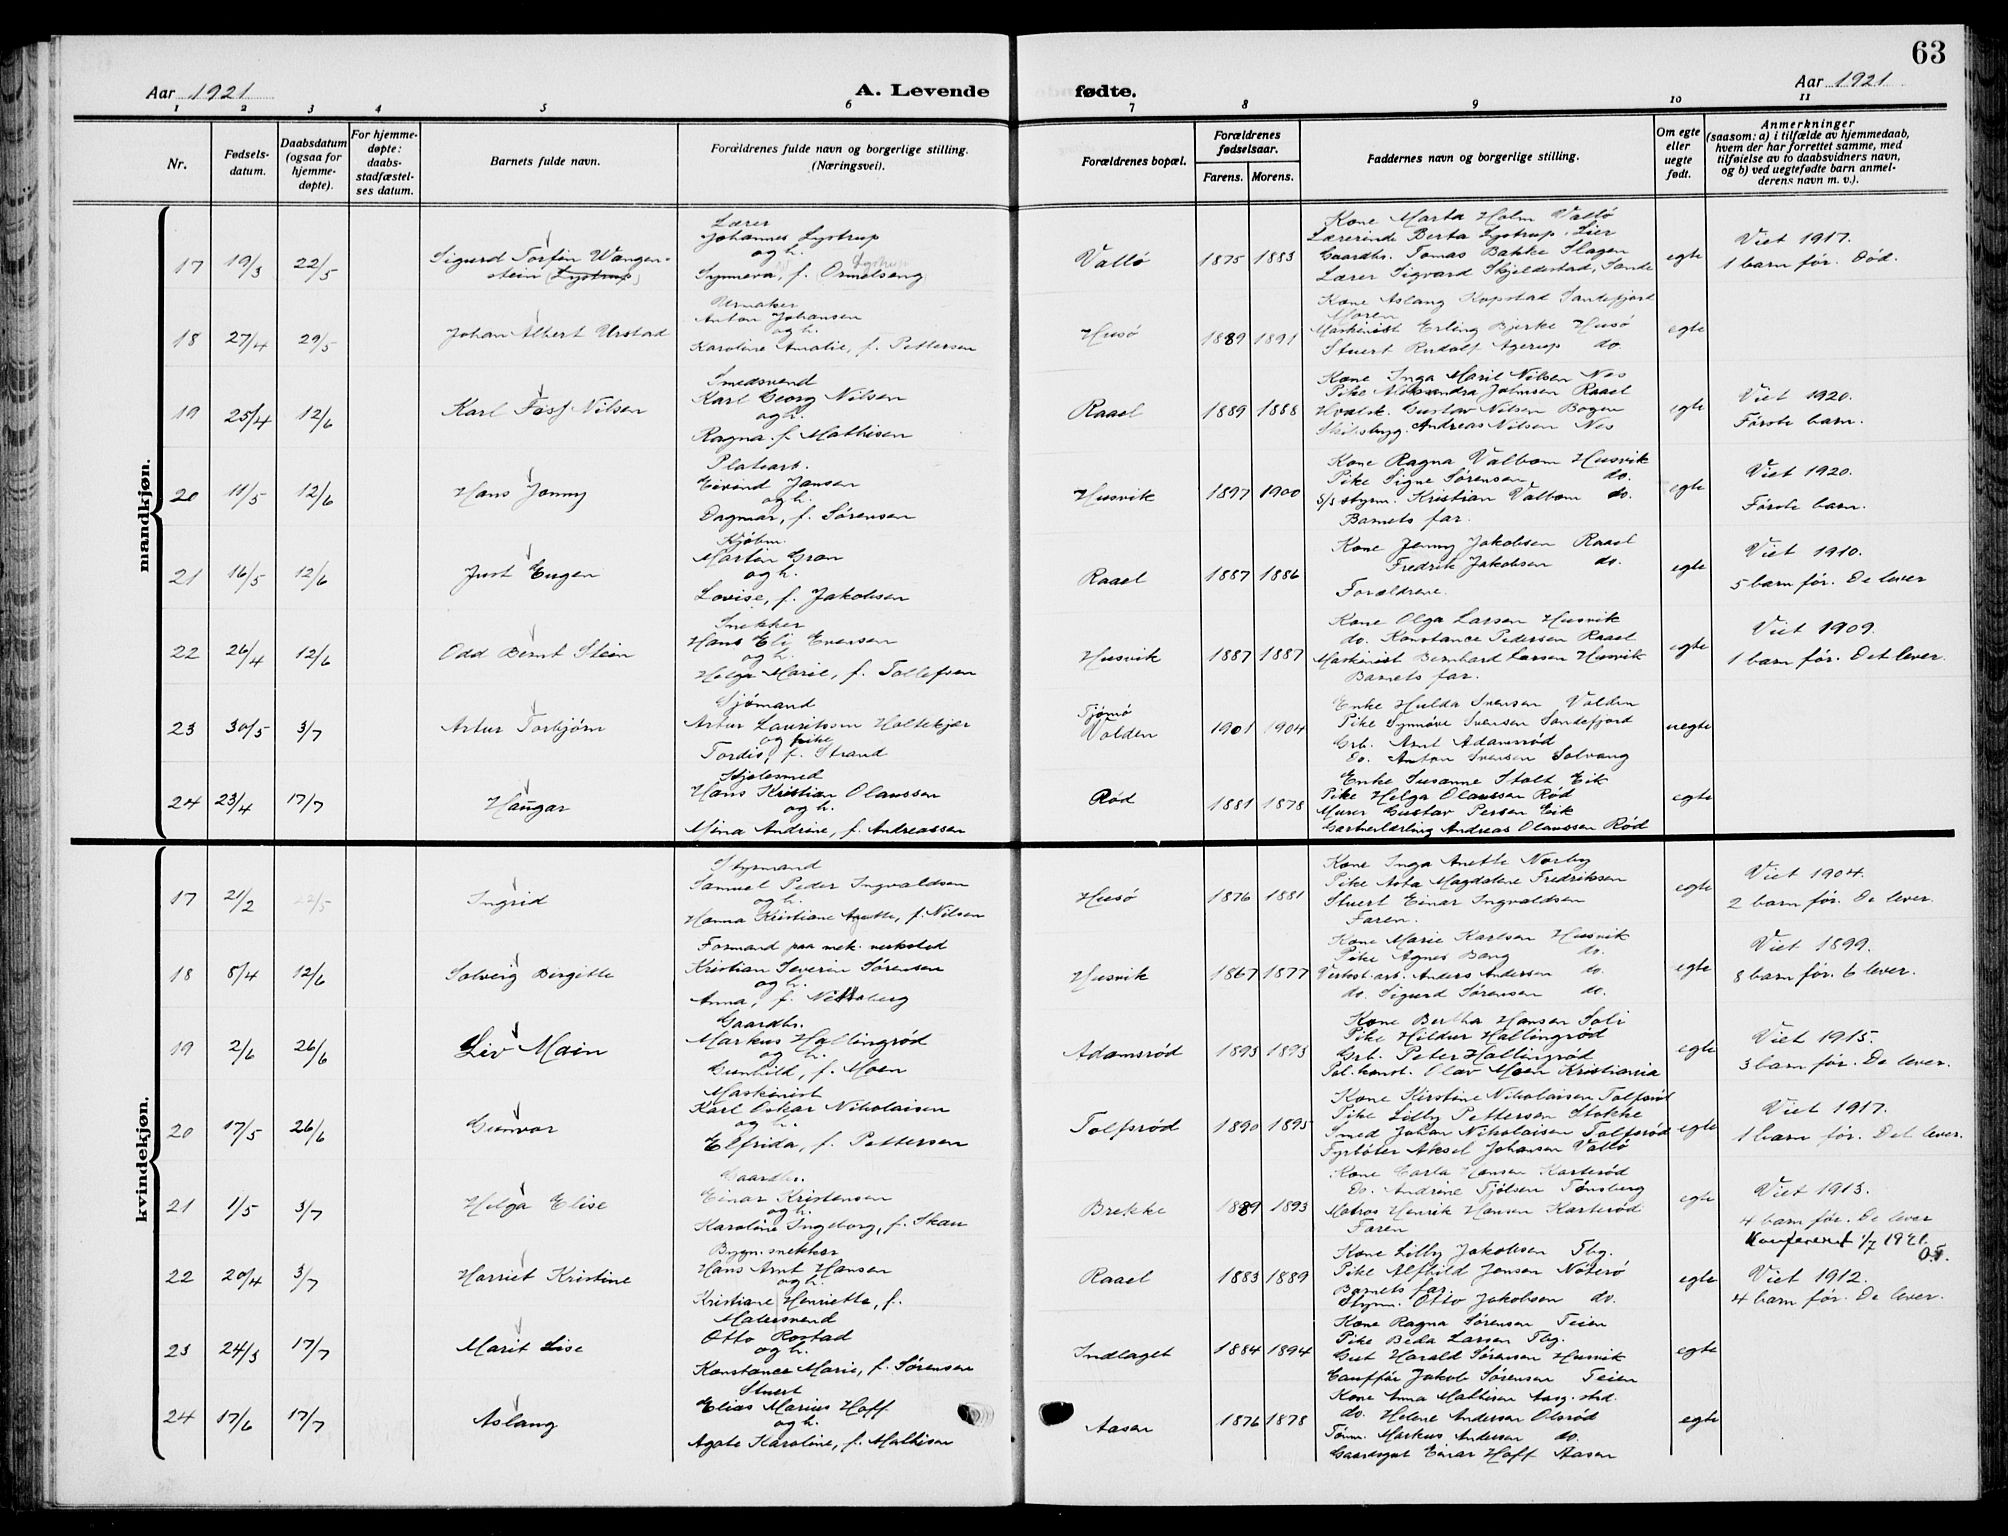 63
Aar 1921
A. Levende
fødte.
Aar 1921
1 2 3 4 5 6 7 8 9 10 11
Nr.
Fødsels-
datum.
Daabsdatum
(ogsaa for
hjemme-
døpte).
For hjemme-
døpte:
daabs-
stadfæstel-
ses datum.
Barnets fulde navn.
Forældrenes fulde navn og borgerlige stilling.
(Næringsvei).
Forældrenes bopæl.
Forældrenes
fødselsaar.
Farens. Morens.
Faddernes navn og borgerlige stilling.
Om egte
eller
uegte
født.
Anmerkninger
(saasom: a) i tilfælde av hjemmedaab,
hvem der har forrettet samme, med
tilføielse av to daabsvidners navn,
og b) ved uegtefødte barn anmel-
derens navn m. v.).
mandkjøn.
17 19/3 22/5
Sigurd Torfin Wangen-
stein (Lystrup)
Lærer
Johannes Lystrup
og h.
Synneva, f. Ormelseng
Vallö 1875 1883
Kone Marta Holm Vallö
Lærerinde Berta Lystrup, Lier
Gaardbr. Tomas Bakke Slagen
Lærer Sigvard Skjeldestad, Sande
egte
Viet 1917.
1 barn før. Død.
18 27/4 29/5
Johan Albert Urstad
Urmaker
Anton Johansen
og h.
Karoline Amalie, f. Pettersen
Husö 1889 1891
Kone Aslaug Kopstad Sandefjord
Moren
Maskinist Erling Bjerke Husö
Stuert Rudolf Agerup do.
egte
19 25/4 12/6
Karl Nilsen
Smedsvend
Karl Georg Nilsen
og h.
Ragna, f. Mathisen
Raael 1889 1888
Kone Inga Maril Nilsen Nes
Pike Johnsen Raael
Hvalsk. Gustav Nilsen Bogen
Skibsbyg. Andreas Nilsen Nes
egte
Viet 1920.
Første barn.
20 11/5 12/6
Hans Jonny
Platearb.
Eivind Jansen
og h.
Dagmar, f. Sørensen
Husvik 1897 1900
Kone Ragna Valbom Husvik
Pike Signe Sørensen do.
S/S styrm. Kristian Valbom do.
Barnets far.
egte
Viet 1920.
Første barn.
21 16/5 12/6
Just Eugen
Kjøbm.
Martin Gran
og h.
Lovise, f. Jakobsen
Raael 1887 1886
Kone Jenny Jakobsen Raael
Fredrik Jakobsen do.
Forældrene.
egte
Viet 1910.
5 barn før. De lever
22 26/4 12/6
Odd Bernt Stein
Snekker
Hans Eli Evensen
og h.
Helga Marie, f. Tollefsen
Husvik 1887 1887
Kone Olga Larsen Husvik
do. Konstance Pedersen Raael
Maskinist Bernhard Larsen Husvik
Barnets far.
egte
Viet 1909.
1 barn før. Det lever.
23 30/5 3/7
Artur Torbjørn
Sjømand
Artur Lauritssen Holtekjær
og pike
Tordis, f. Strand
Tjømø
Volden 1901 1904
Enke Hulda Svensen Volden
Pike Synnöve Svensen Sandefjord
Grb. Arnt Adamsrød
Do. Anton Svensen Solvang
uegte
24 23/4 17/7
Haugar
Hjulsmed
Hans Kristian Olaussen
og h.
Mina Andrine, f. Andreassen
Rød 1881 1878
Enke Susanne Stolt Eik
Pike Helga Olaussen Rød
Murer Gustav Persen Eik
Gartnerlærling Andreas Olaussen Rød
egte
kvindekjøn.
17 21/2 22/5
Ingrid
Styrmand
Samuel Peder Ingvaldsen
og h.
Hanna Kristiane Agette, f. Nilsen
Husö 1876 1881
Kone Inga Anette Norby
Pike Nota Magdalene Fredriksen
Stuert Einar Ingvaldsen
Faren.
egte
Viet 1904.
2 barn før. De lever.
18 8/4 12/6
Solveig Birgitte
Formand paa mek. verksted
Kristian Severin Sørensen
og h.
Anna, f.
Husvik 1867 1877
Kone Marie Karlsen Husvik
Pike Agnes Bang do.
Verkst. arb. Anders Andersen do.
do. Sigurd Sørensen do.
egte
Viet 1899.
8 barn før. 6 lever.
19 2/6 26/6
Liv Moin
Gaardbr.
Markus Hallingrød
og h.
Gunhild, f. Moen
Adamsrød 1893 1893
Kone Bertha Hansen Soli
Pike Hildur Hallingrød
Grb. Peter Hallingrød
Pol. konst. Olav Moen Kristiania
egte
Viet 1915.
3 barn før. De lever.
20 17/5 26/6
Gunvor
Maskinist
Karl Oskar Nikolaisen
og h.
Elfrida, f. Pettersen
Tolfsrød 1890 1895
Kone Kirstine Nikolaisen Tolfsrød
Pike Lilly Pettersen Stokke
Smed Johan Nikolaisen Tolfsrød
Fyrbøter Aksel Johansen Vallö
egte
Viet 1917.
1 barn før. Det lever.
21 1/5 3/7
Helga Elise
Gaardbr.
Einar Kristensen
og h.
Karoline Ingeborg, f. Skau
Brekke 1889 1893
Kone Carla Hansen Karterød
Do. Andrine Tjølsen Tønsberg
Matros Henrik Hansen Karterød
Faren
egte
Viet 1913.
4 barn før. De lever
Konfereret 1/7 1921.
O.F.
22 20/4 3/7
Harriet Kristine
Bygn. snekker
Hans Arnt Hansen
og h.
Kristiane Henriette, f.
Raael 1883 1889
Kone Lilly Jakobsen Tbg.
Pike Alfhild Jensen Nøterö
Barnets far.
Styrm. Otto Jakobsen do.
egte
Viet 1912.
4 barn før. De lever.
23 24/3 17/7
Marit Lise
Malersvend
Otto Rostad
og h.
Konstance Marie, f. Sørensen
Indlaget 1884 1894
Kone Ragna Sørensen Teien
Pike Beda Larsen Tbg.
Gut Harald Sørensen Husvik
Cauffør Jakob Sørensen Teien
egte
24 17/6 17/7
Aslaug
Stuert
Elias Marius Hoff
og h.
Agate Karoline, f. Mathisen
Aasen 1876 1878
Kone Anna Mathisen Aasg. strd.
do. Helene Andersen Olsrød
Tømm. Markus Andersen do.
Gaardsgut Einar Hoff Aasen
egte